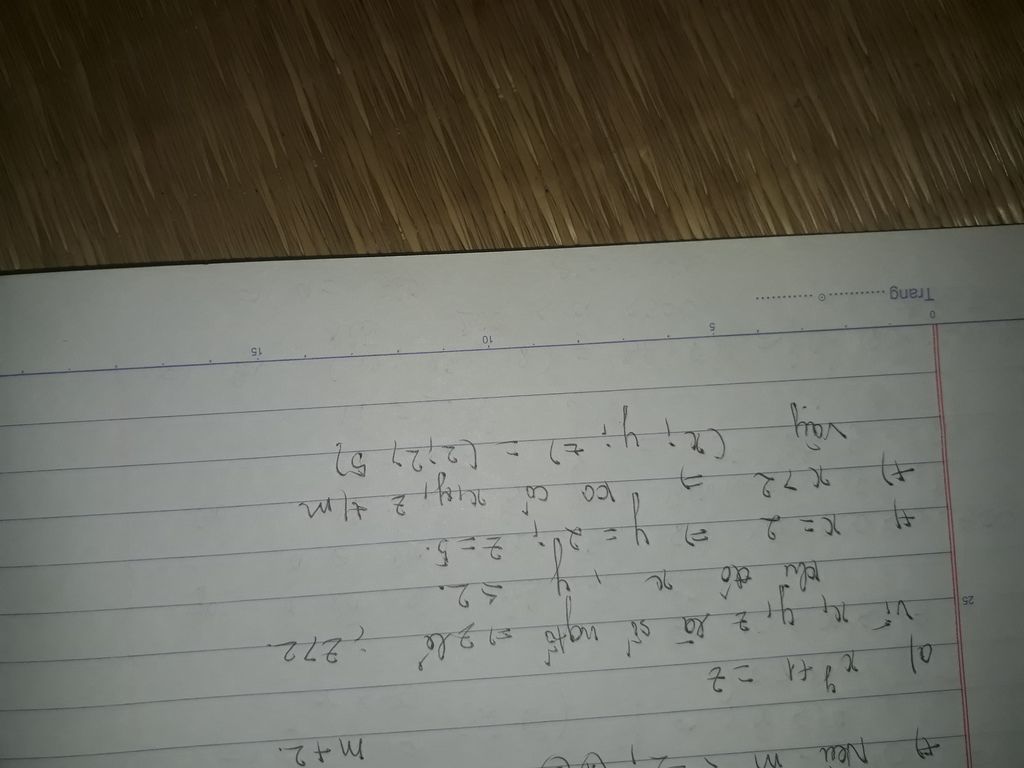 +) Nếu m = 2, m + 2.
a) x^y + 1 = z
Vì x, y, z là số ngtố => z lẻ ; z > 2.
khi đó x , y = 2.
+) x = 2 => y = 2 ; z = 5.
+) x > 2 => ko có x, y, z t/m
Vậy (x ; y ; z) = (2 ; 2 ; 5)
25
0 5 10 15
Trang